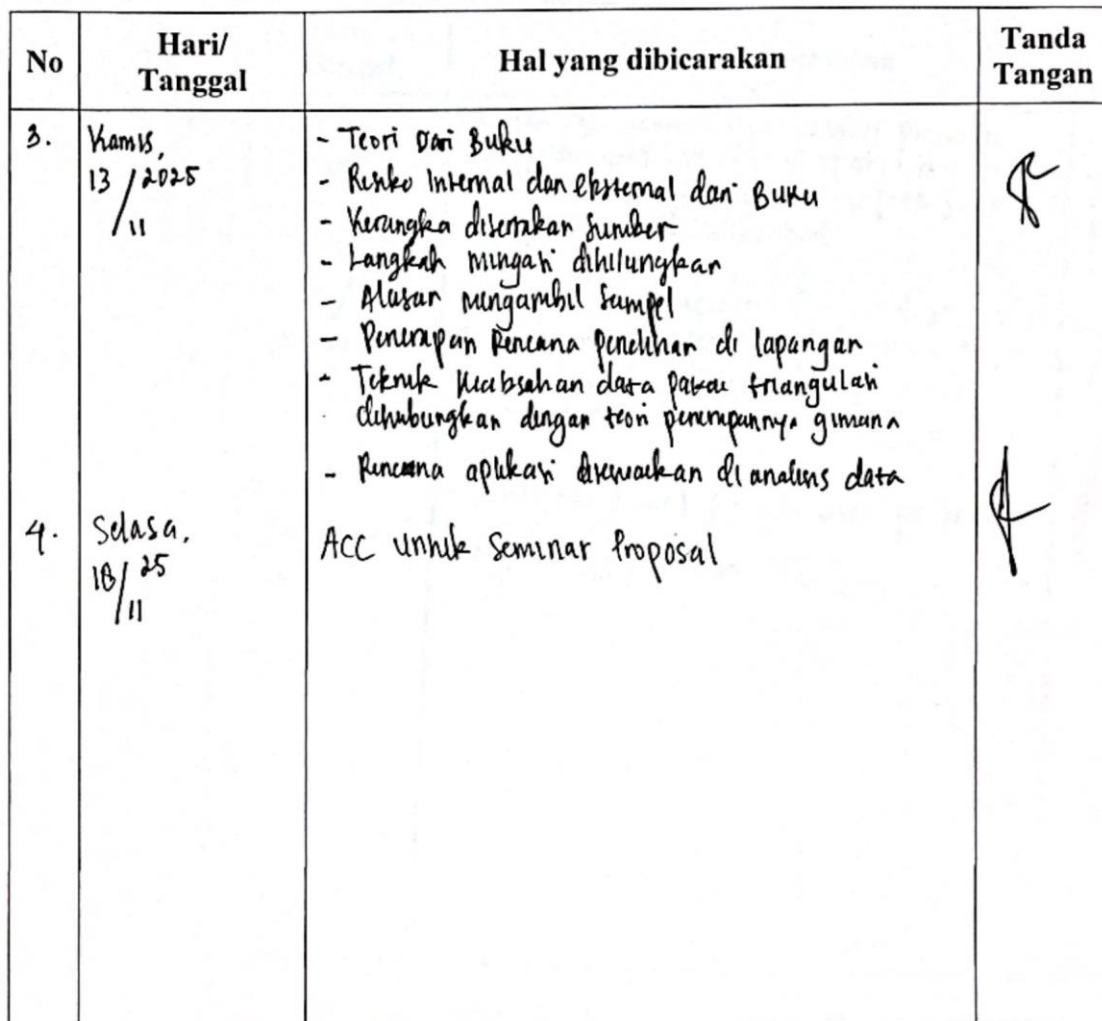 No
Hari/
Tanggal
Hal yang dibicarakan
Tanda
Tangan
3.
Kamis,
13/2025
/11
- Teori Dari Buku
- Resiko Internal dan eksternal dari Buku
- Kerangka disertakan Sumber
- Langkah mengatasi dihilangkan
- Alasan mengambil Sampel
- Penerapan Rencana penelitian di lapangan
- Teknik Keabsahan data pakai triangulasi
dihubungkan dengan teori penerapannya gimana
- Rencana aplikasi di analisis data
4.
Selasa,
18/25
/11
ACC Untuk Seminar Proposal